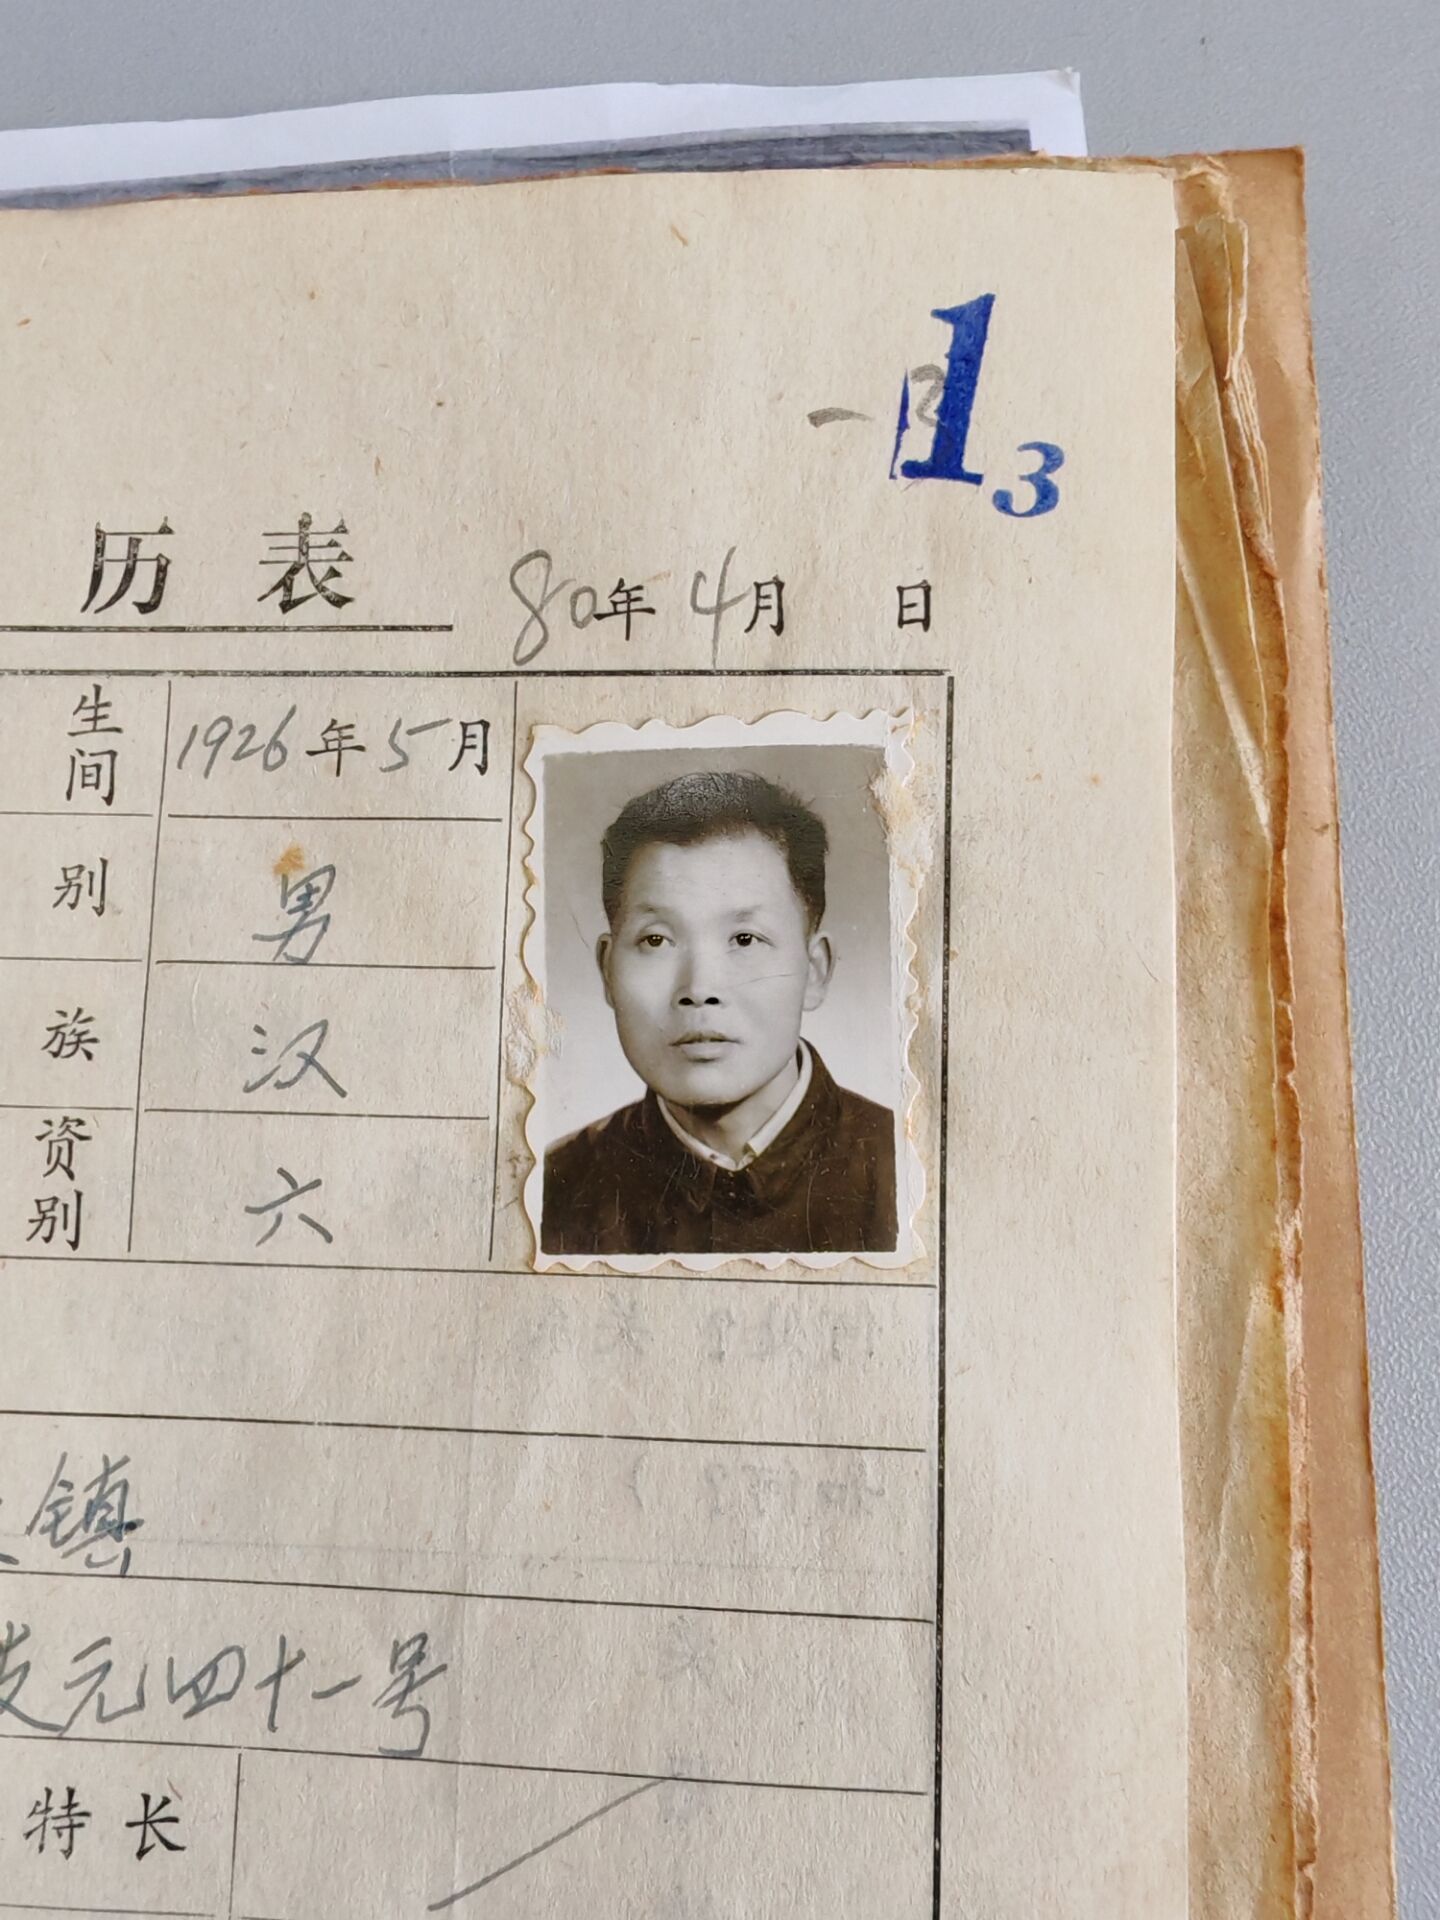 1
3
历表
80年4月 日
生间 1926年5月
别 男
族 汉
资别 六
镇
元四十一号
特长